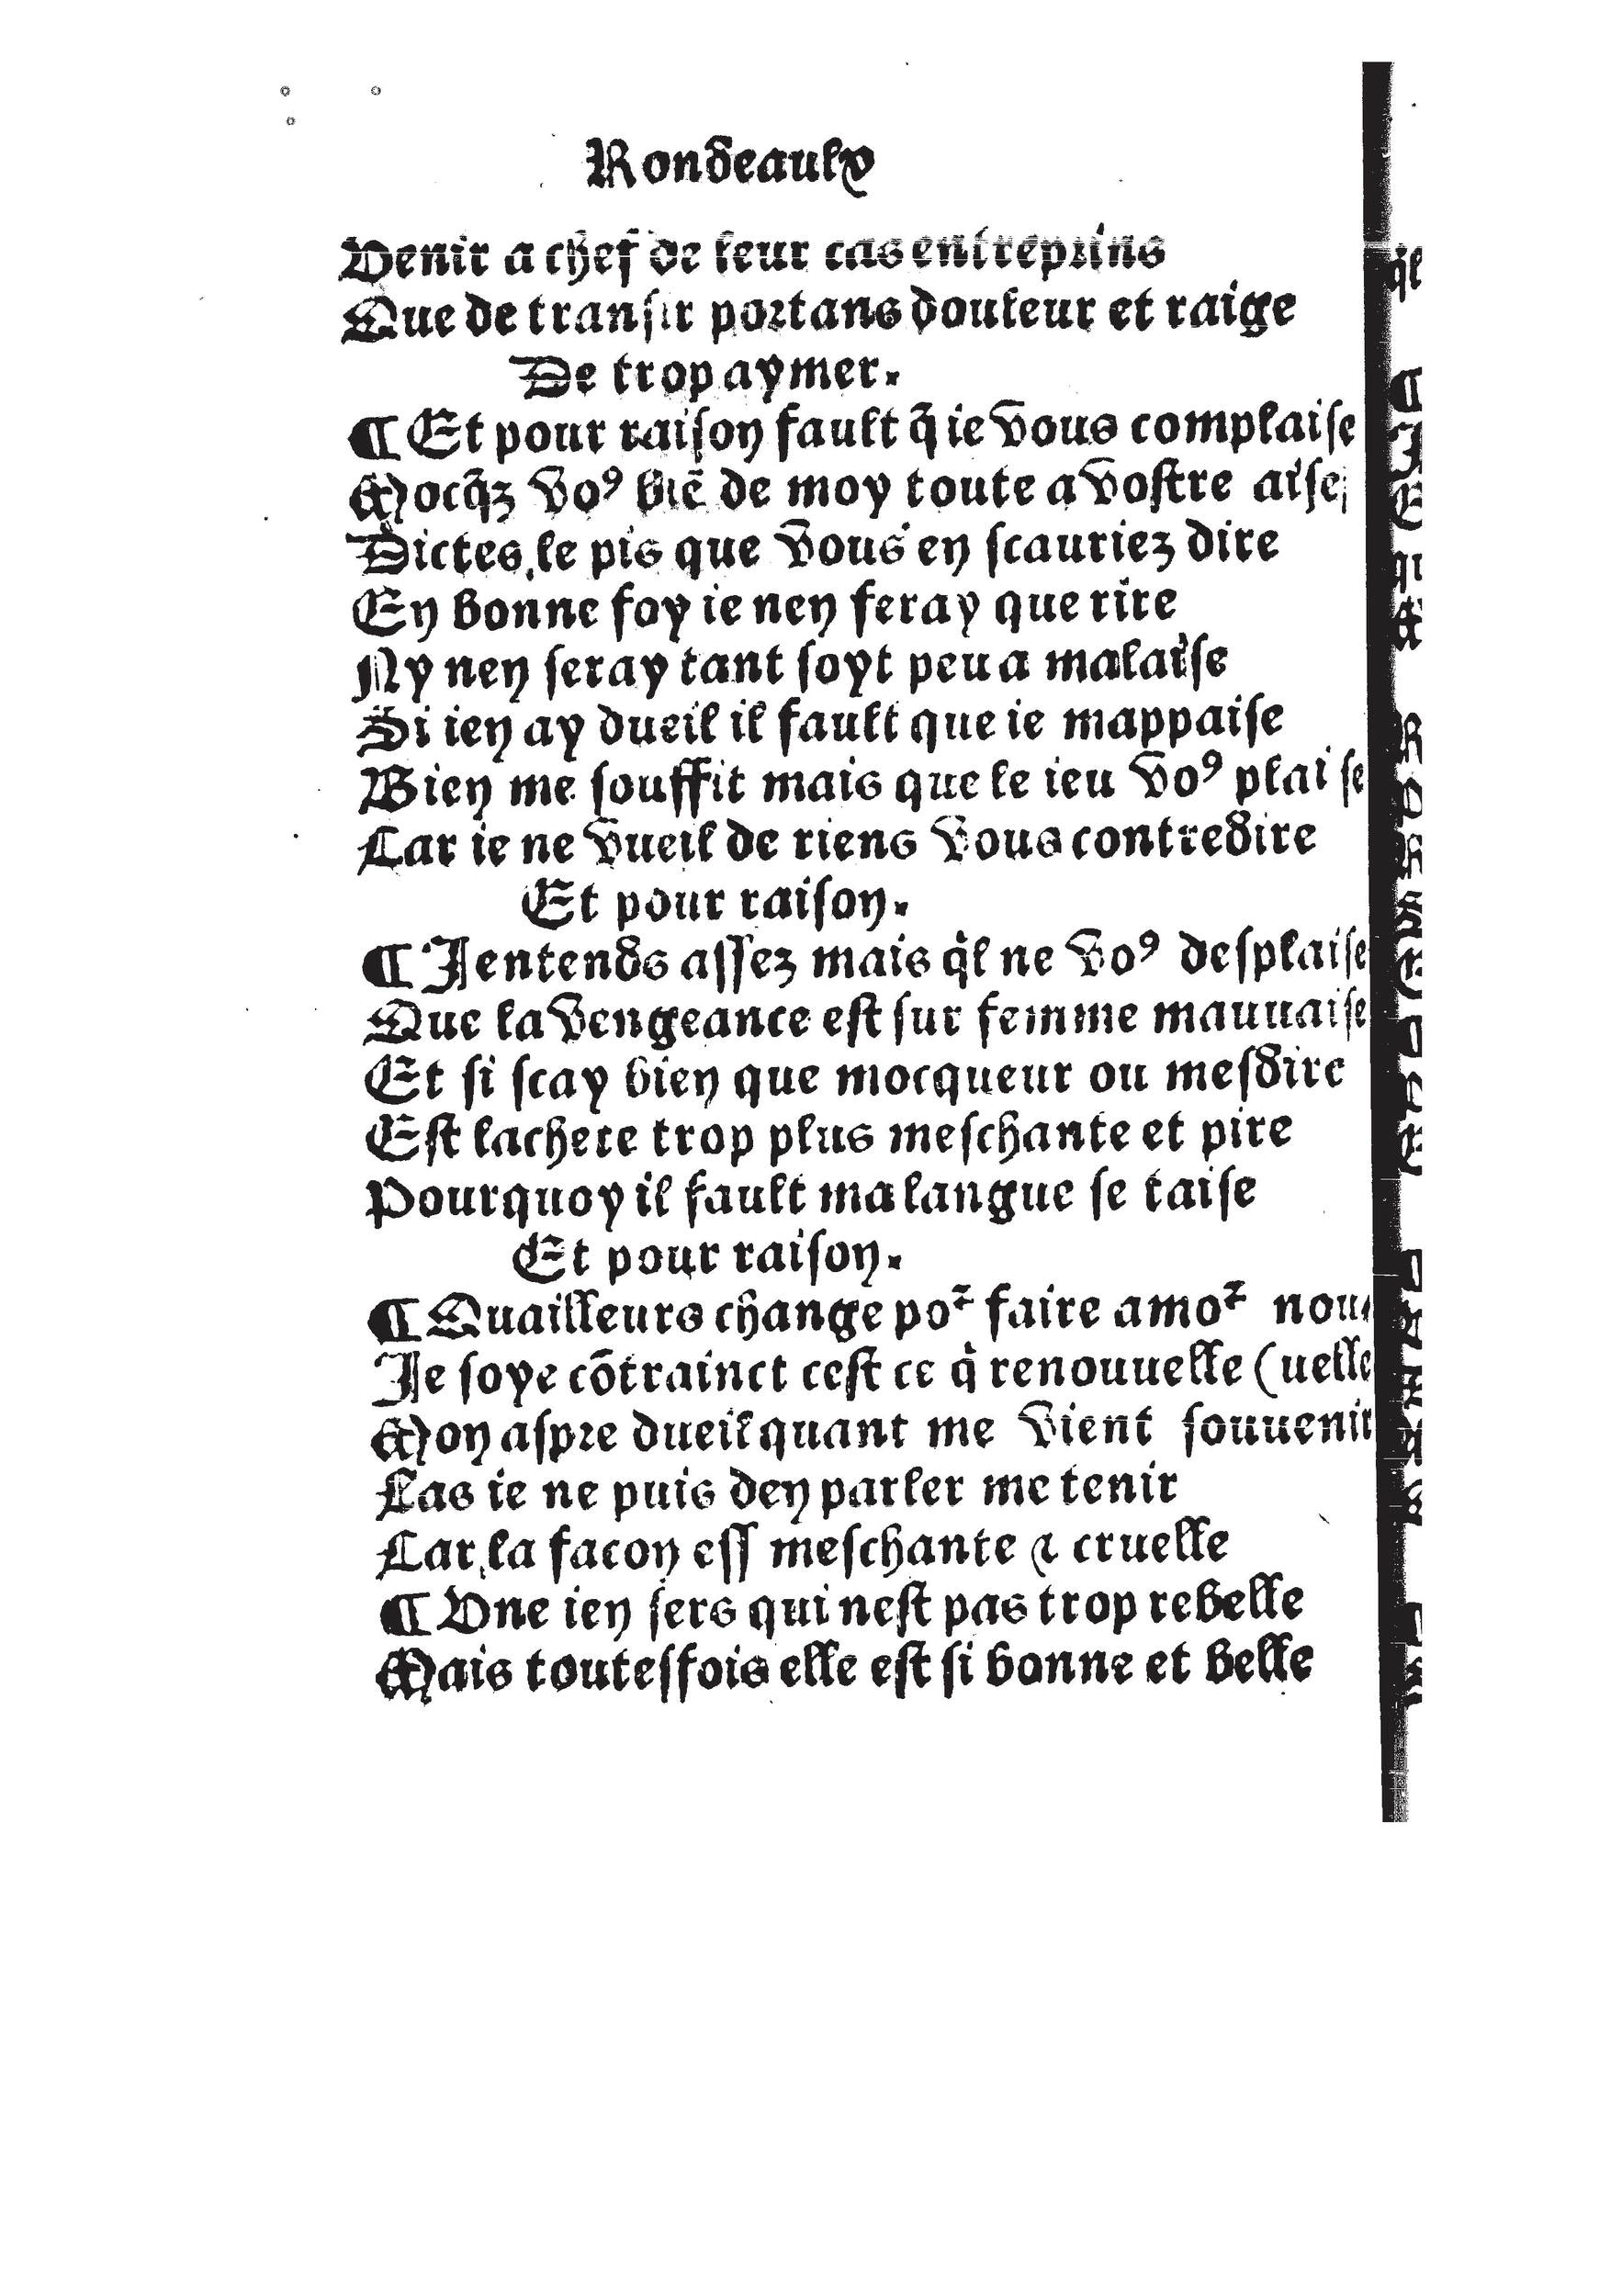 Rondeaulx
Venir a chef de leur cas entreprins
Que de transir portans douleur et raige
De trop aymer.
¶ Et pour raison fault q̃ ie vous complaise
Mocq̃z voꝰ biẽ de moy toute a vostre aise
Dictes le pis que vous en scauriez dire
En bonne foy ie nen feray que rire
Ny nen seray tant soyt peu a malaise
Si ien ay dueil il fault que ie mappaise
Bien me souffit mais que le ieu voꝰ plaise
Car ie ne vueil de riens vous contredire
Et pour raison.
¶ Jentends assez mais q̇l ne voꝰ desplaise
Que la vengeance est sur femme mauuaise
Et si scay bien que mocqueur ou mesdire
Est lachete trop plus meschante et pire
Pourquoy il fault ma langue se taise
Et pour raison.
¶ Quailleurs change poᷣ faire amoᷣ nou
Je soye cõtrainct cest ce q̇ renouuelle (uelle
Mon aspre dueil quant me vient souuenir
Las ie ne puis den parler me tenir
Car la facon ess meschante ⁊ cruelle
¶ Vne ien sers qui nest pas trop rebelle
Mais toutesfois elle est si bonne et belle